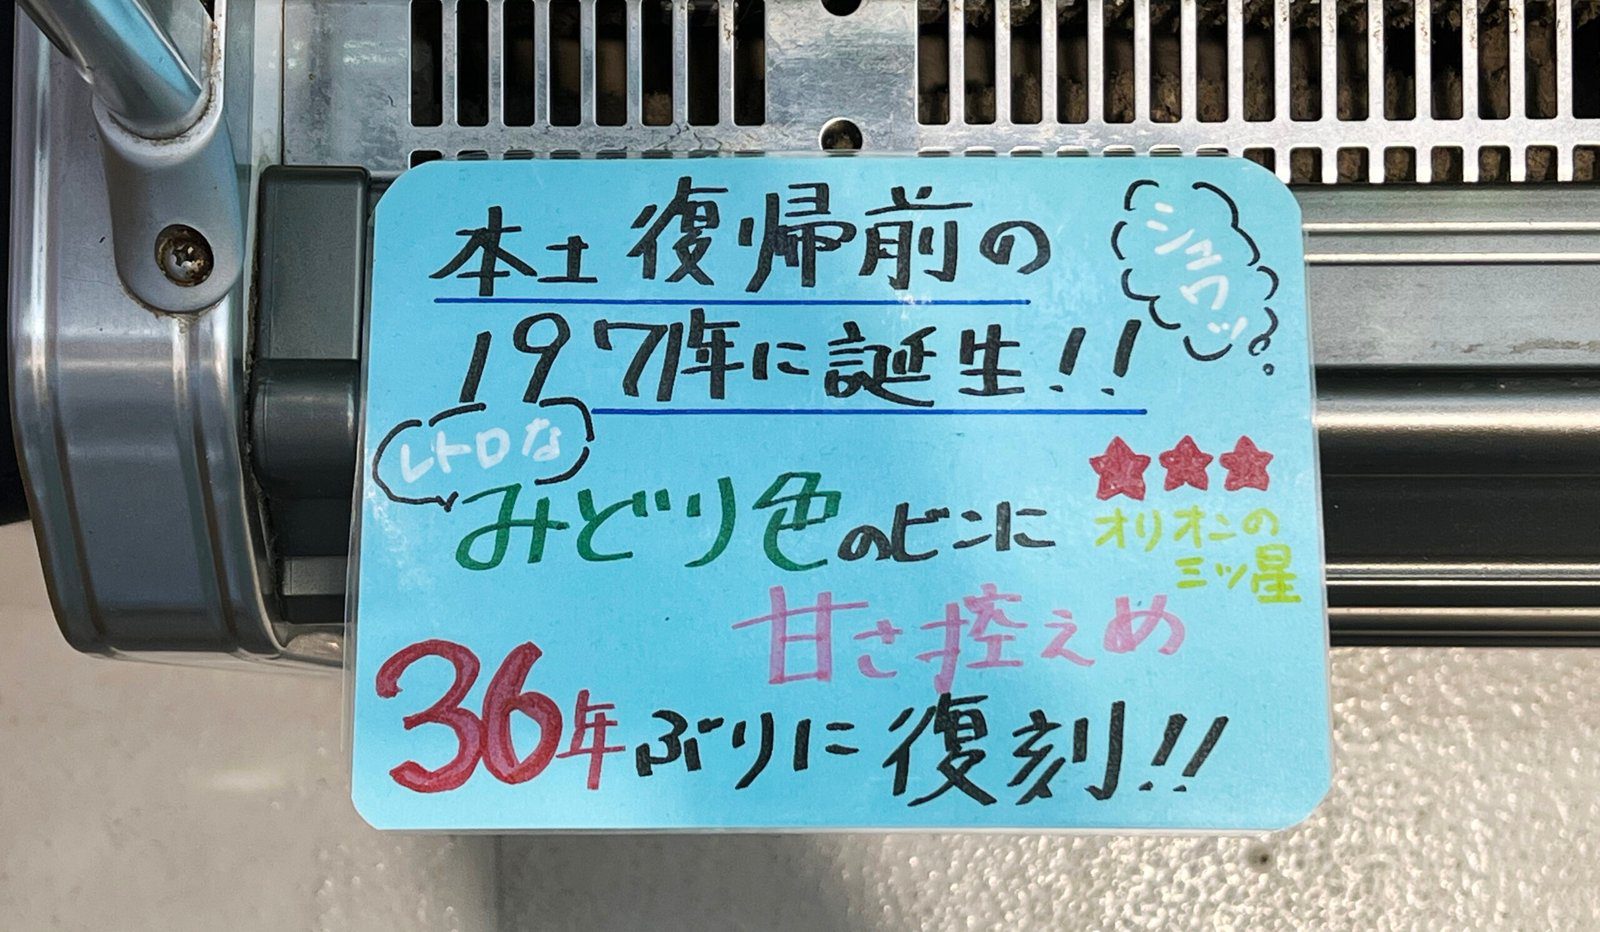 本土復帰前の
シュワッ
1971年に誕生!!
レトロな
みどり色のビンに
★★★
オリオンの
三ツ星
甘さ控えめ
36年ぶりに復刻!!